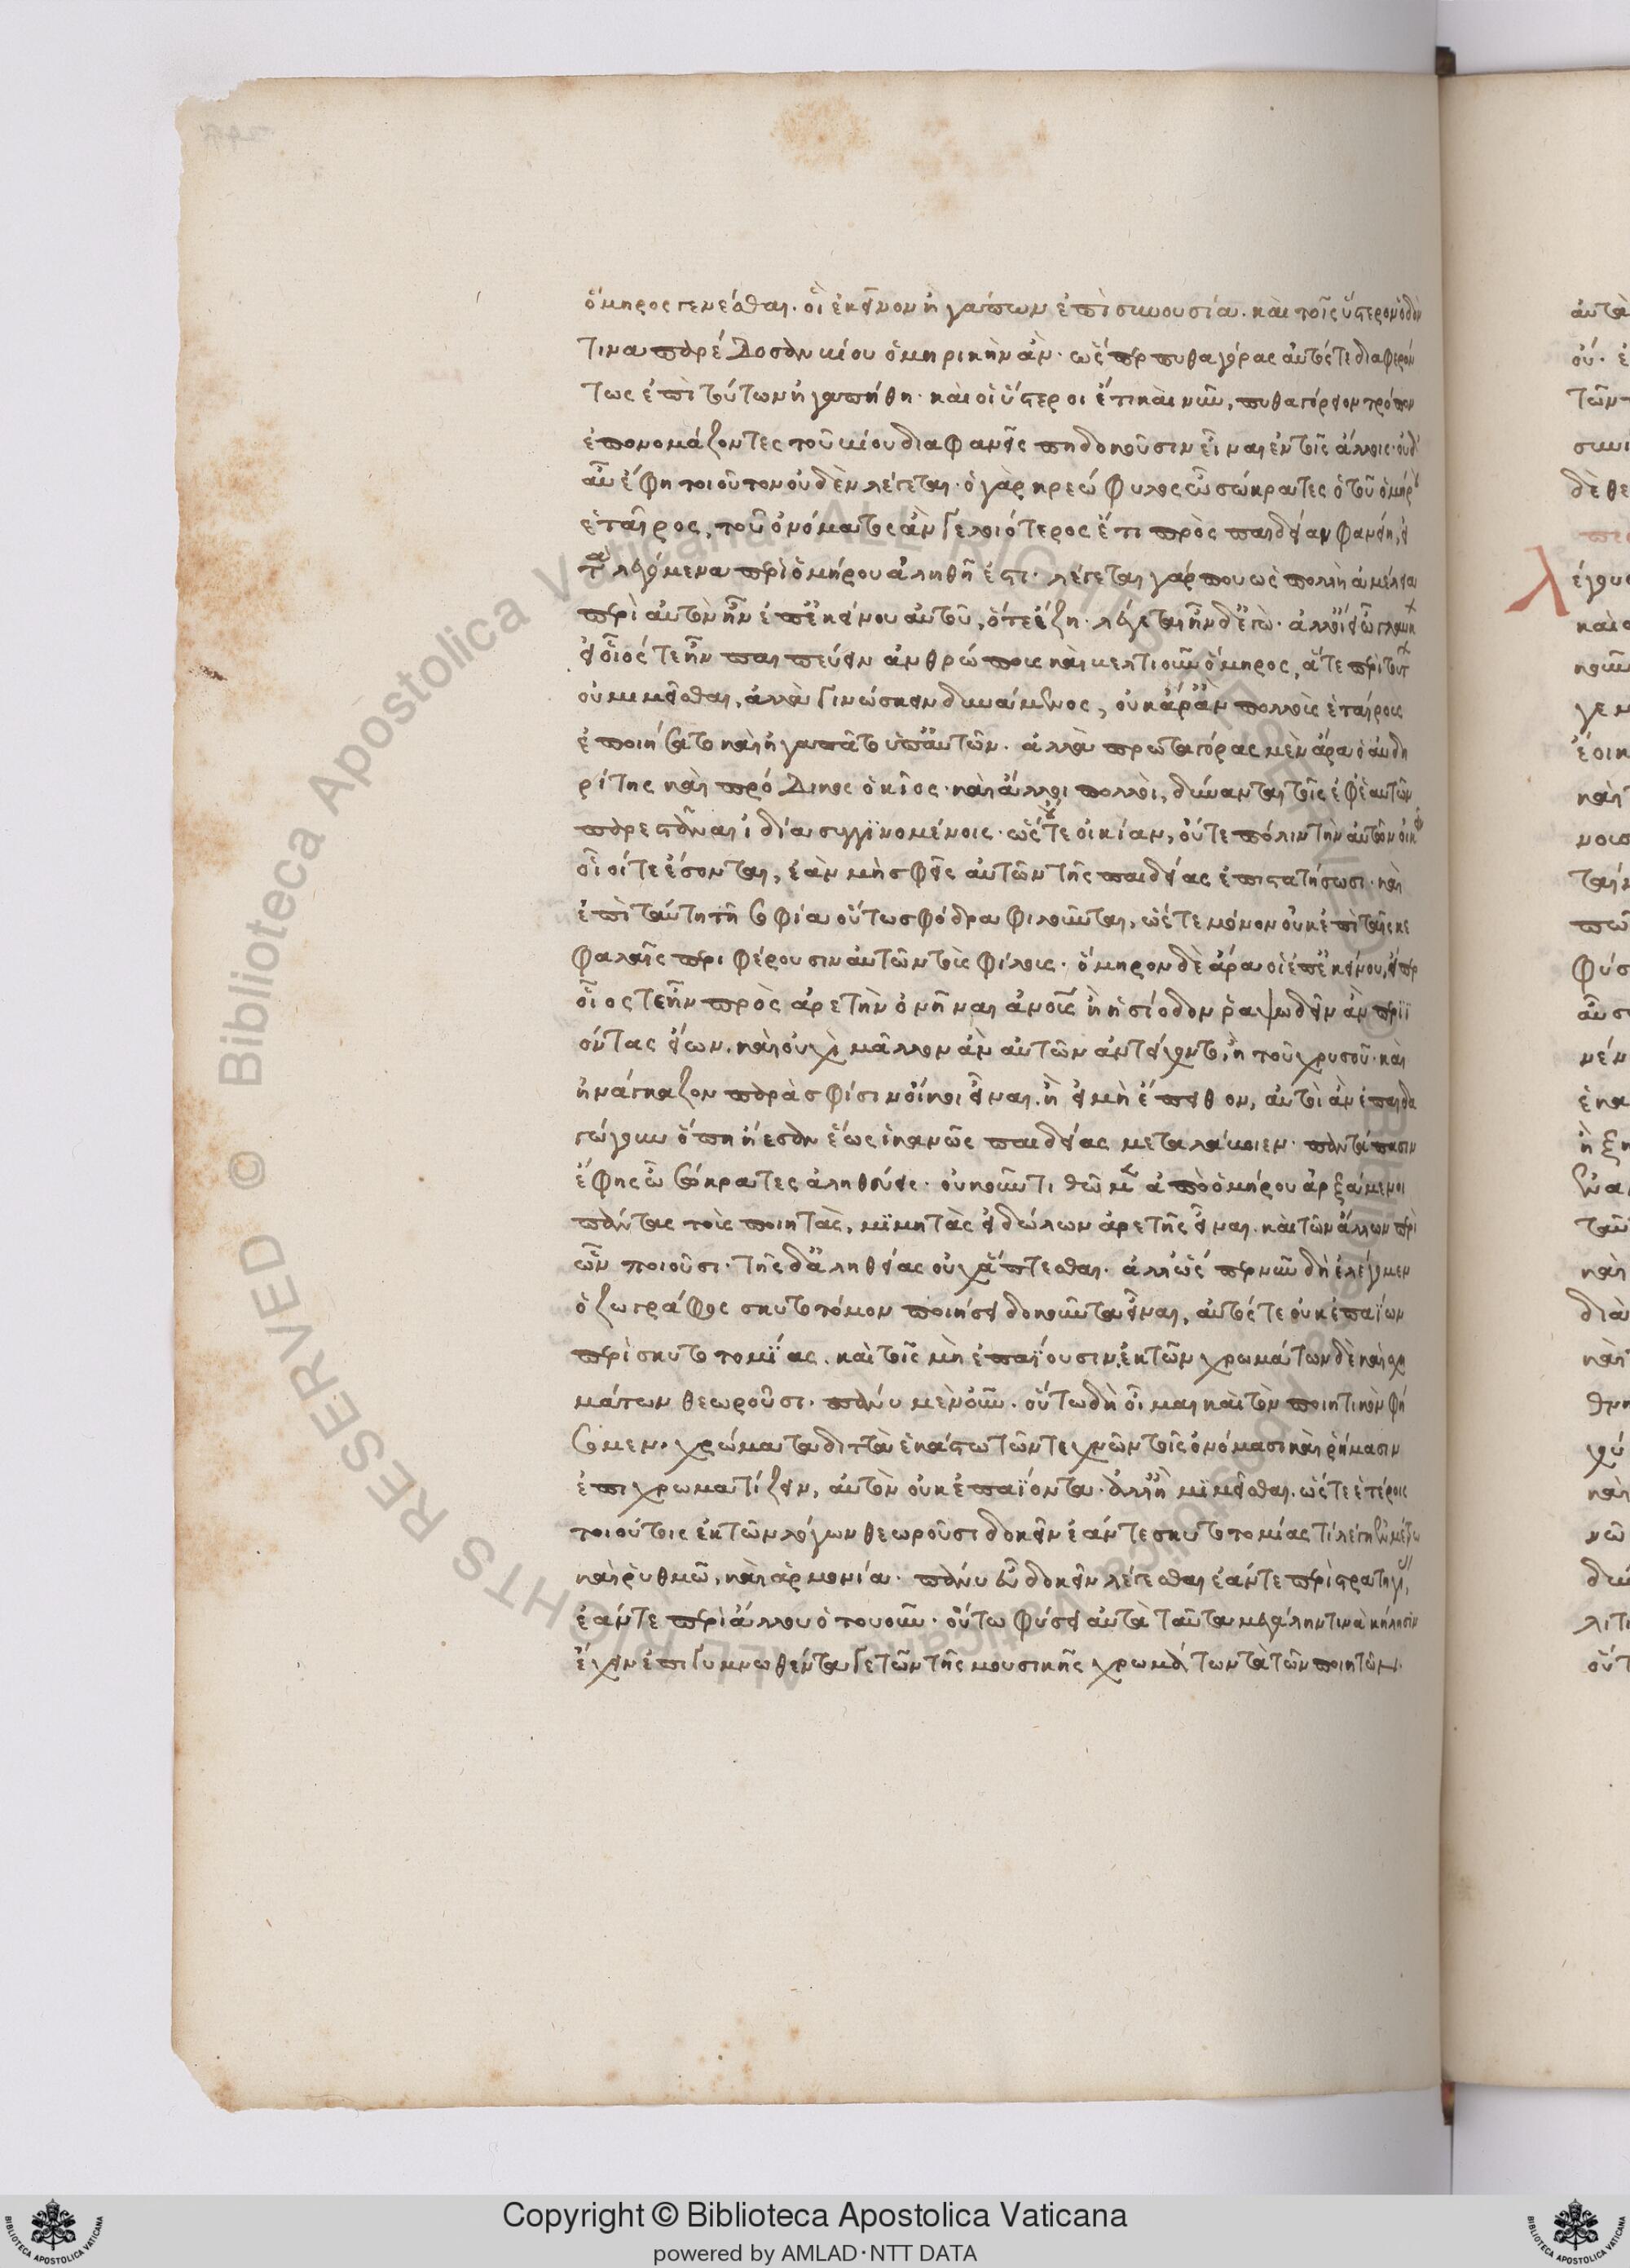 ὅμηρος γενέσθαι. οἳ ἐκεῖνον ἠγάπων ἐπὶ συνουσία. καὶ τοῖς ὑστέροις ὁδόν
τινα παρέδοσαν βίου ὁμηρικὴν ἂν. ὥσπερ πυθαγόρας αὐτός τε διαφερόν
τως ἐπὶ τούτων ἠγαπήθη. καὶ οἱ ὕστεροι ἔτι καὶ νῦν, πυθαγόρειον τρόπον
ἐπονομάζοντες τοῦ βίου διαφανεῖς πη δοκοῦσιν εἶναι ἐν τοῖς ἄλλοις. οὐδ
αὖ ἔφη τοιοῦτον οὐδὲν λέγεται. ὁ γὰρ κρεώφυλος ὦ σώκρατες ὁ τοῦ ὁμήρου
ἑταῖρος, τοῦ ὀνόματος ἂν γελοιότερος ἔτι πρὸς παιδείαν φανείη, εἰ
τὰ λεγόμενα περὶ ὁμήρου ἀληθῆ ἐστι. λέγεται γάρ που ὡς πολλὴ ἀμέλεια
περὶ αὐτὸν ἦν ἐπ' ἐκείνου αὐτοῦ, ὅτε ἔζη. λέγεται ἦν δ' ἐγώ. ἀλλ' οἴει ὦ γλαύκ
εἰ οἷός τε ἦν παιδεύειν ἀνθρώπους καὶ βελτίους ὅμηρος, ἅτε περὶ τούτ
οὐ μιμεῖσθαι, ἀλλὰ γινώσκειν δυνάμενος, οὐκ ἄρ' ἂν πολλοὺς ἑταίρους
ἐποιήσατο καὶ ἠγαπᾶτο ὑπ' αὐτῶν. ἀλλὰ πρωταγόρας μὲν ἄρα ὁ ἀβδη
ρίτης καὶ πρόδικος ὁ κῖος. καὶ ἄλλοι πολλοὶ, δύνανται τοῖς ἐφ' ἑαυτῶν
παρεστάναι ἰδία συγγινομένοις. ὡς οὔτε οἰκίαν, οὔτε πόλιν τὴν αὐτῶν διοικεῖν
οἷοί τε ἔσονται, ἐὰν μὴ σφεῖς αὐτῶν τῆς παιδείας ἐπιστατήσωσι. καὶ
ἐπὶ ταύτη τῆ σοφία οὕτω σφόδρα φιλοῦνται, ὥστε μόνον οὐκ ἐπὶ ταῖς κε
φαλαῖς περιφέρουσιν αὐτοὺς οἱ φίλοι. ὅμηρον δὲ ἄρα οἱ ἐπ' ἐκείνου, εἴπερ
οἷός τε ἦν πρὸς ἀρετὴν ὀνῆναι ἀνους ἢ ἡσίοδον ῥαψωδεῖν ἂν περιϊ
όντας εἴων. καὶ οὐχὶ μᾶλλον ἂν αὐτῶν ἀντείχοντο, ἢ τοῦ χρυσοῦ. καὶ
ἠνάγκαζον παρὰ σφίσιν οἴκοι εἶναι. ἢ εἰ μὴ ἔπειθον, αὐτοὶ ἂν ἐπαιδα
γώγουν ὅπη ἤεσαν ἕως ἱκανῶς παιδείας μεταλάβοιεν. παντάπασιν
ἔφης ὦ σώκρατες ἀληθεύεις. οὐκοῦν τιθῶμεν ἀπὸ ὁμήρου ἀρξάμενοι
πάντας τοὺς ποιητὰς, μιμητὰς εἰδώλων ἀρετῆς εἶναι. καὶ τῶν ἄλλων περὶ
ὧν ποιοῦσι. τῆς δ' ἀληθείας οὐχ ἅπτεσθαι. ἀλλ' ὥσπερ νῦν δὴ ἐλέγομεν
ὁ ζωγράφος σκυτοτόμον ποιήσει δοκοῦντα εἶναι, αὐτός τε οὐκ ἐπαΐων
περὶ σκυτοτομίας. καὶ τοῖς μὴ ἐπαΐουσιν. ἐκ τῶν χρωμάτων δὲ καὶ σχη
μάτων θεωροῦσι. πάνυ μὲν οὖν. οὕτω δὴ οἶμαι καὶ τὸν ποιητικὸν φή
σομεν, χρώματα ἄττα ἑκάστω τῶν τεχνῶν τοῖς ὀνόμασι καὶ ῥήμασιν
ἐπιχρωματίζειν, αὐτὸν οὐκ ἐπαΐοντα. ἀλλ' ἢ μιμεῖσθαι. ὥστε ἑτέροις
τοιούτοις ἐκ τῶν λόγων θεωροῦσι δοκεῖν ἐάν τε σκυτοτομίας τι λέγη ἐν μέτρω
καὶ ῥυθμῶ, καὶ ἁρμονία. πάνυ εὖ δοκεῖν λέγεσθαι ἐάν τε περὶ στρατηγί,
ἐάν τε περὶ ἄλλου ὁτουοῦν. οὕτω φύσει αὐτὰ ταῦτα μεγάλην τινὰ κήλησιν
ἔχειν ἐπὶ γυμνωθέντα γε τῶν τῆς μουσικῆς χρωμάτων τὰ τῶν ποιητῶν.